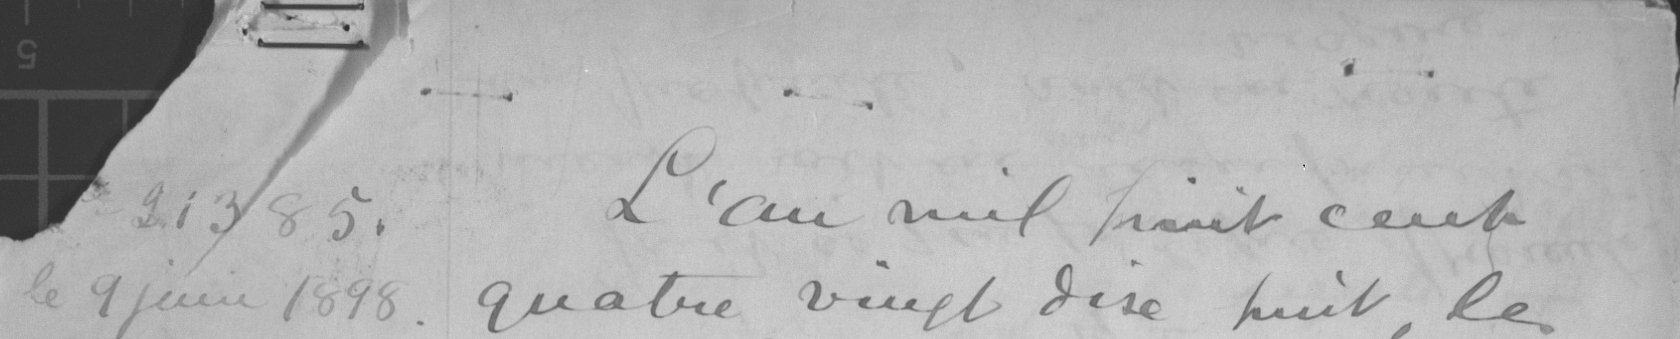 21385.
le 9 juin 1898.
L'an mil huit cent
quatre vingt dix huit, le